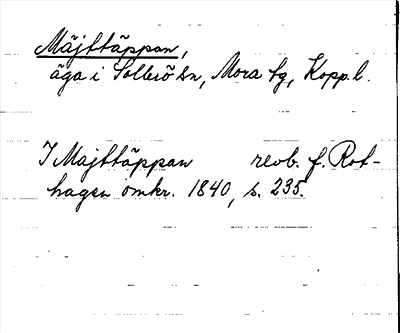 Mäjttäppan,
äga i Sollerö sn, Mora tg, Kopp.l.
I Majttäppan revb. f. Rot-
hagen omkr. 1840, s. 235.